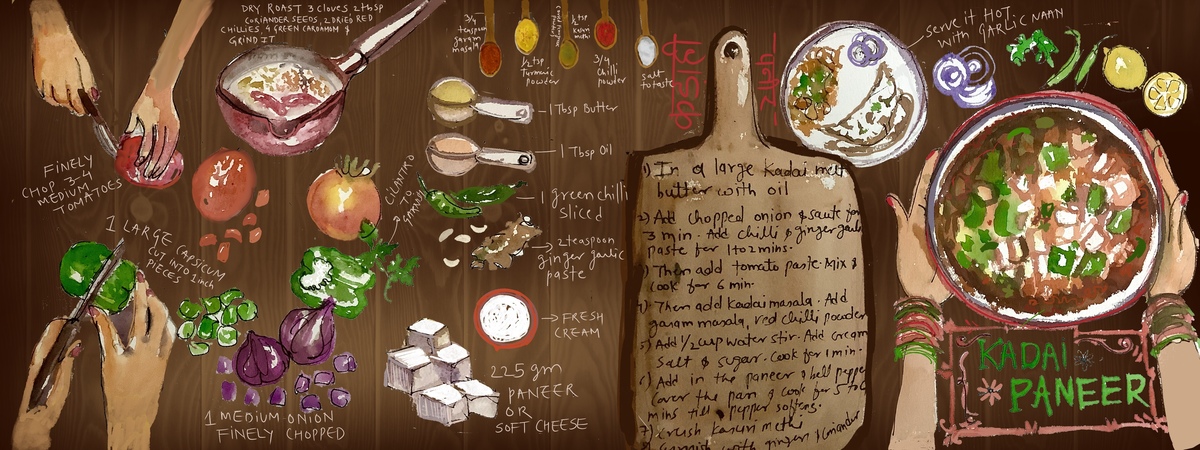 DRY ROAST 3 cloves 2tbsp
CORIANDER SEEDS, 2 DRIED RED
CHILLIES, 4 GREEN CARDAMOM &
GRIND IT
FINELY
CHOP 3-4
MEDIUM
TOMATOES
1 LARGE CAPSICUM
CUT INTO 1inch
PIECES
CILANTRO
TO
1 MEDIUM ONION
FINELY CHOPPED
3/4
teaspoon
garam
masala
1/2 tsp
Turmeric
powder
1/2 tsp
kasuri
methi
3/4
Chilli
powder
salt
to taste
1 Tbsp Butter
1 Tbsp Oil
1 green chilli
sliced
2 teaspoon
ginger garlic
paste
FRESH
CREAM
225 gm
PANEER
OR
SOFT CHEESE
कडाई
1) In a large Kadai melt
butter with oil
2) Add chopped onion & saute for
3 min. Add chilli & ginger garlic
paste for 1 to 2 mins.
Then add tomato paste. Mix &
cook for 6 min.
Then add Kadai masala. Add
garam masala, red chilli powder
5) Add 1/2 cup water stir. Add cream
Salt & sugar. Cook for 1 min.
Add in the paneer & bell pepper
cover the pan & cook for 5 to
mins till pepper softens.
7) Crush kasuri methi
with ginger
serve it HOT
with GARLIC NAAN
KADAI
PANEER